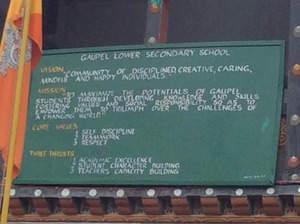 GAUPEL LOWER SECONDARY SCHOOL
VISION
"COMMUNITY OF DISCIPLINED, CREATIVE, CARING,
MINDFUL AND HAPPY INDIVIDUALS."
MISSION
"TO MAXIMIZE THE POTENTIALS OF GAUPEL
STUDENTS THROUGH DEVELOPING KNOWLEDGE AND SKILLS
FOSTERING VALUES AND SOCIAL RESPONSIBILITY SO AS TO
EMPOWER THEM TO TRIUMPH OVER THE CHALLENGES OF
A CHANGING WORLD."
CORE VALUES
1 SELF DISCIPLINE
2 TEAMWORK
3 RESPECT
THREE THRUSTS
1 ACADEMIC EXCELLENCE
2 STUDENT CHARACTER BUILDING
3 TEACHERS CAPACITY BUILDING